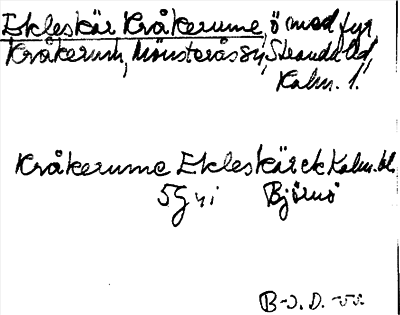 Ekleskär Kråkerume, ö med fyr,
Kråkerum, Mönsterås sn, Stranda hd,
Kalm. l.
Kråkerume Ekleskär ek Kalm. bl.
5G Björnö
B-J. D.